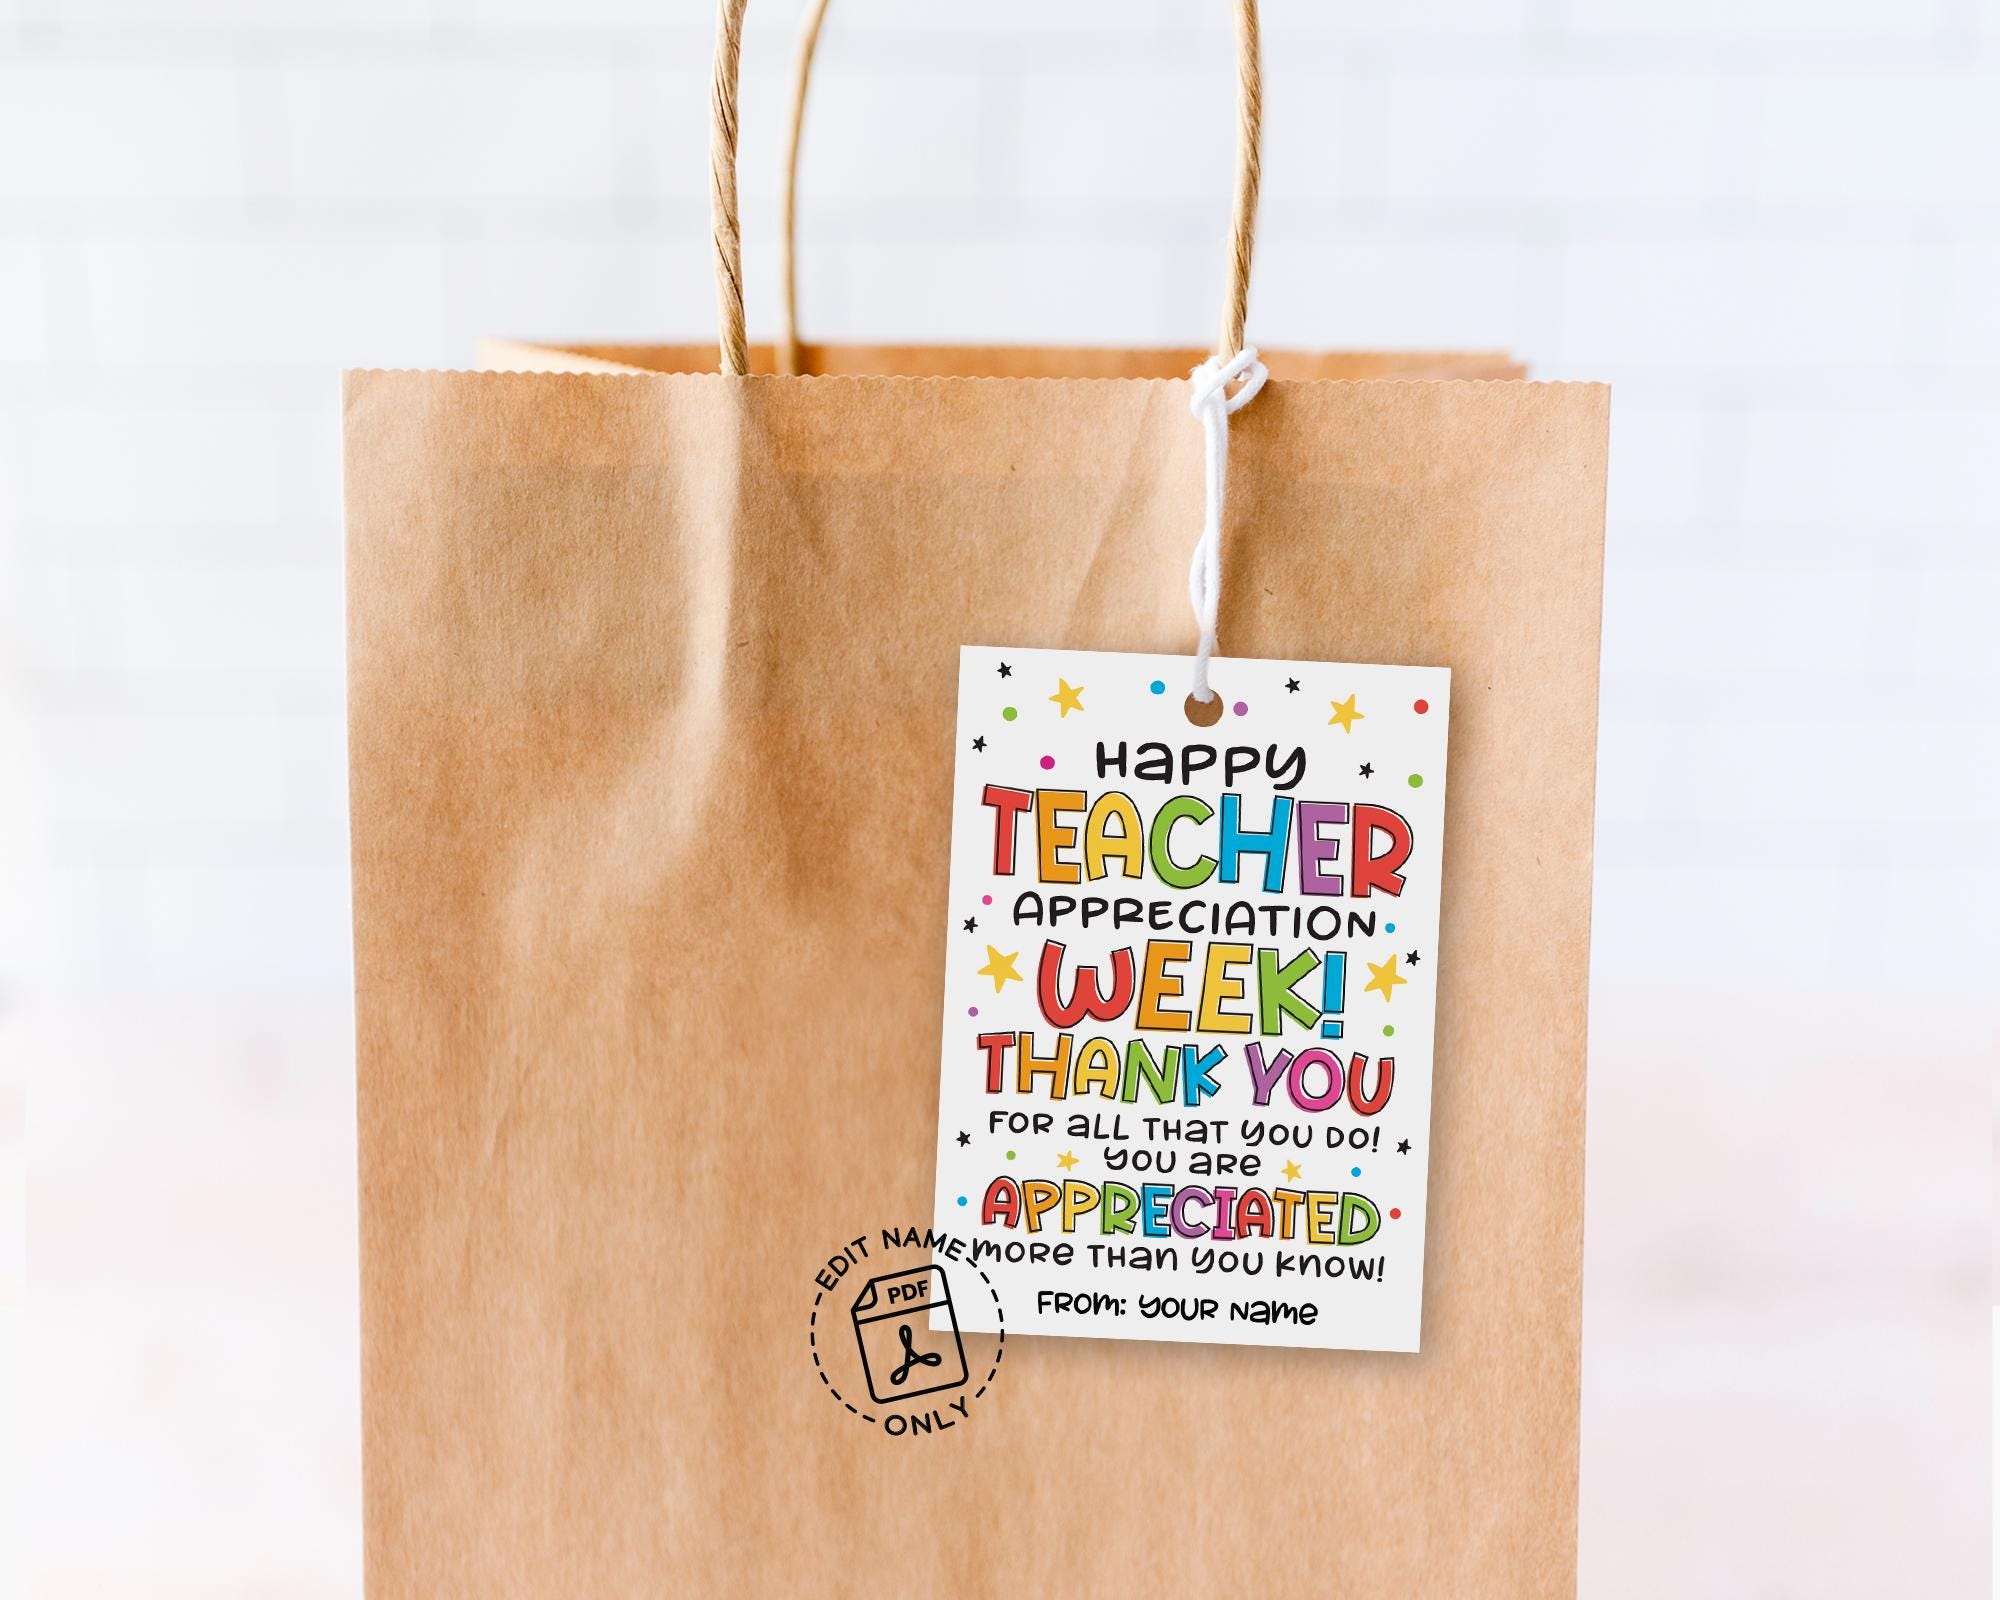 Happy
TEACHER
APPRECIATION
WEEK!
THANK YOU
FOR ALL THAT YOU DO!
YOU ARE
APPRECIATED
MORE THAN YOU KNOW!
FROM: YOUR NAME
EDIT NAME
PDF
ONLY